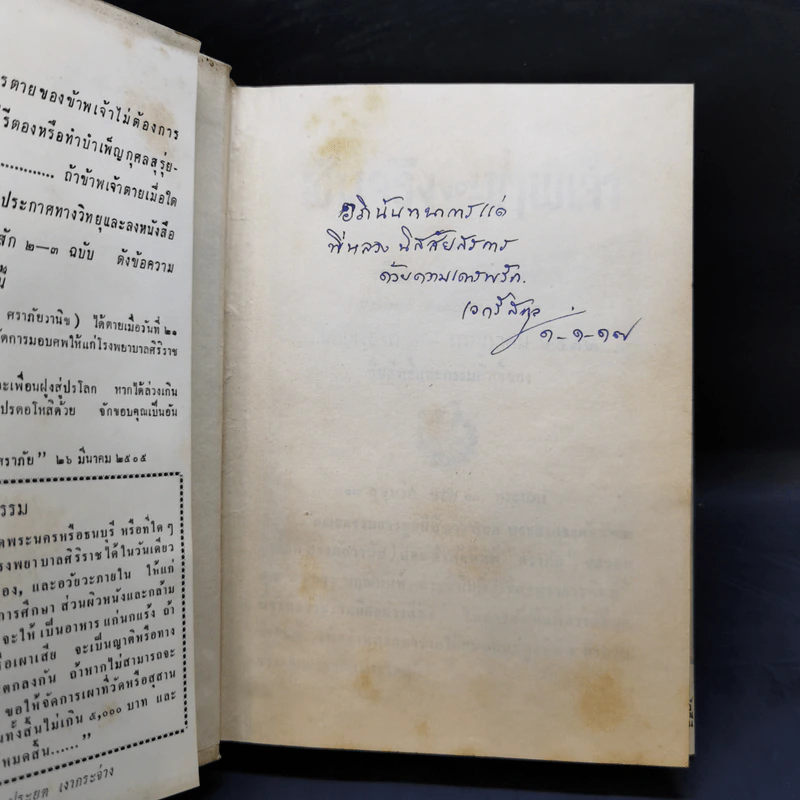 รตายของข้าพเจ้าไม่ต้องการ
รีตองหรือทำบำเพ็ญกุศลสุรุ่ย-
............. ถ้าข้าพเจ้าตายเมื่อใด
ประกาศทางวิทยุและลงหนังสือ
สัก ๒—๓ ฉบับ ดังข้อความ
ศราภัยวานิช) ได้ตายเมื่อวันที่ ๒๑
จัดการมอบศพให้แก่โรงพยาบาลศิริราช
ะเพื่อนฝูงสู่ปรโลก หากได้ล่วงเกิน
ปรดอโหสิด้วย จักขอบคุณเป็นอัน
ศราภัย" ๒๖ มีนาคม ๒๕๐๕
รรม
ดพระนครหรือธนบุรี หรือที่ใด ๆ
รงพยาบาลศิริราชได้ในวันเดียว
อง, และอวัยวะภายใน ให้แก่
การศึกษา ส่วนผิวหนังและกล้าม
จะให้ เป็นอาหาร แก่นกแร้ง ถ้า
รือเผาเสีย จะเป็นญาติหรือทาง
ตกลงกัน ถ้าหากไม่สามารถจะ
ขอให้จัดการเผาที่วัดหรือสุสาน
นทั้งสิ้นไม่เกิน ๕,๐๐๐ บาท และ
หมดสิ้น......"
ประยุต เงากระจ่าง
อภินันทนาการแด่
พี่หลวง นิสสัยสรการ
ด้วยความเคารพรัก.
๑-๑-๑๗